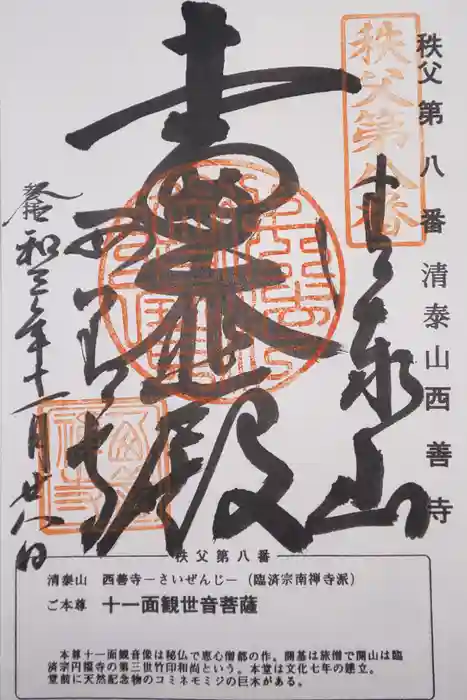 秩父第八番 清泰山西善寺
秩父第八番
清泰山
西善寺
令和三年十一月廿八日
秩父第八番
清泰山　西善寺－さいぜんじ－（臨済宗南禅寺派）
ご本尊　十一面観世音菩薩
本尊十一面観音像は秘仏で恵心僧都の作。開基は旅僧で開山は臨
済宗円福寺の第三世竹印和尚という。本堂は文化七年の建立。
堂前に天然記念物のコミネモミジの巨木がある。